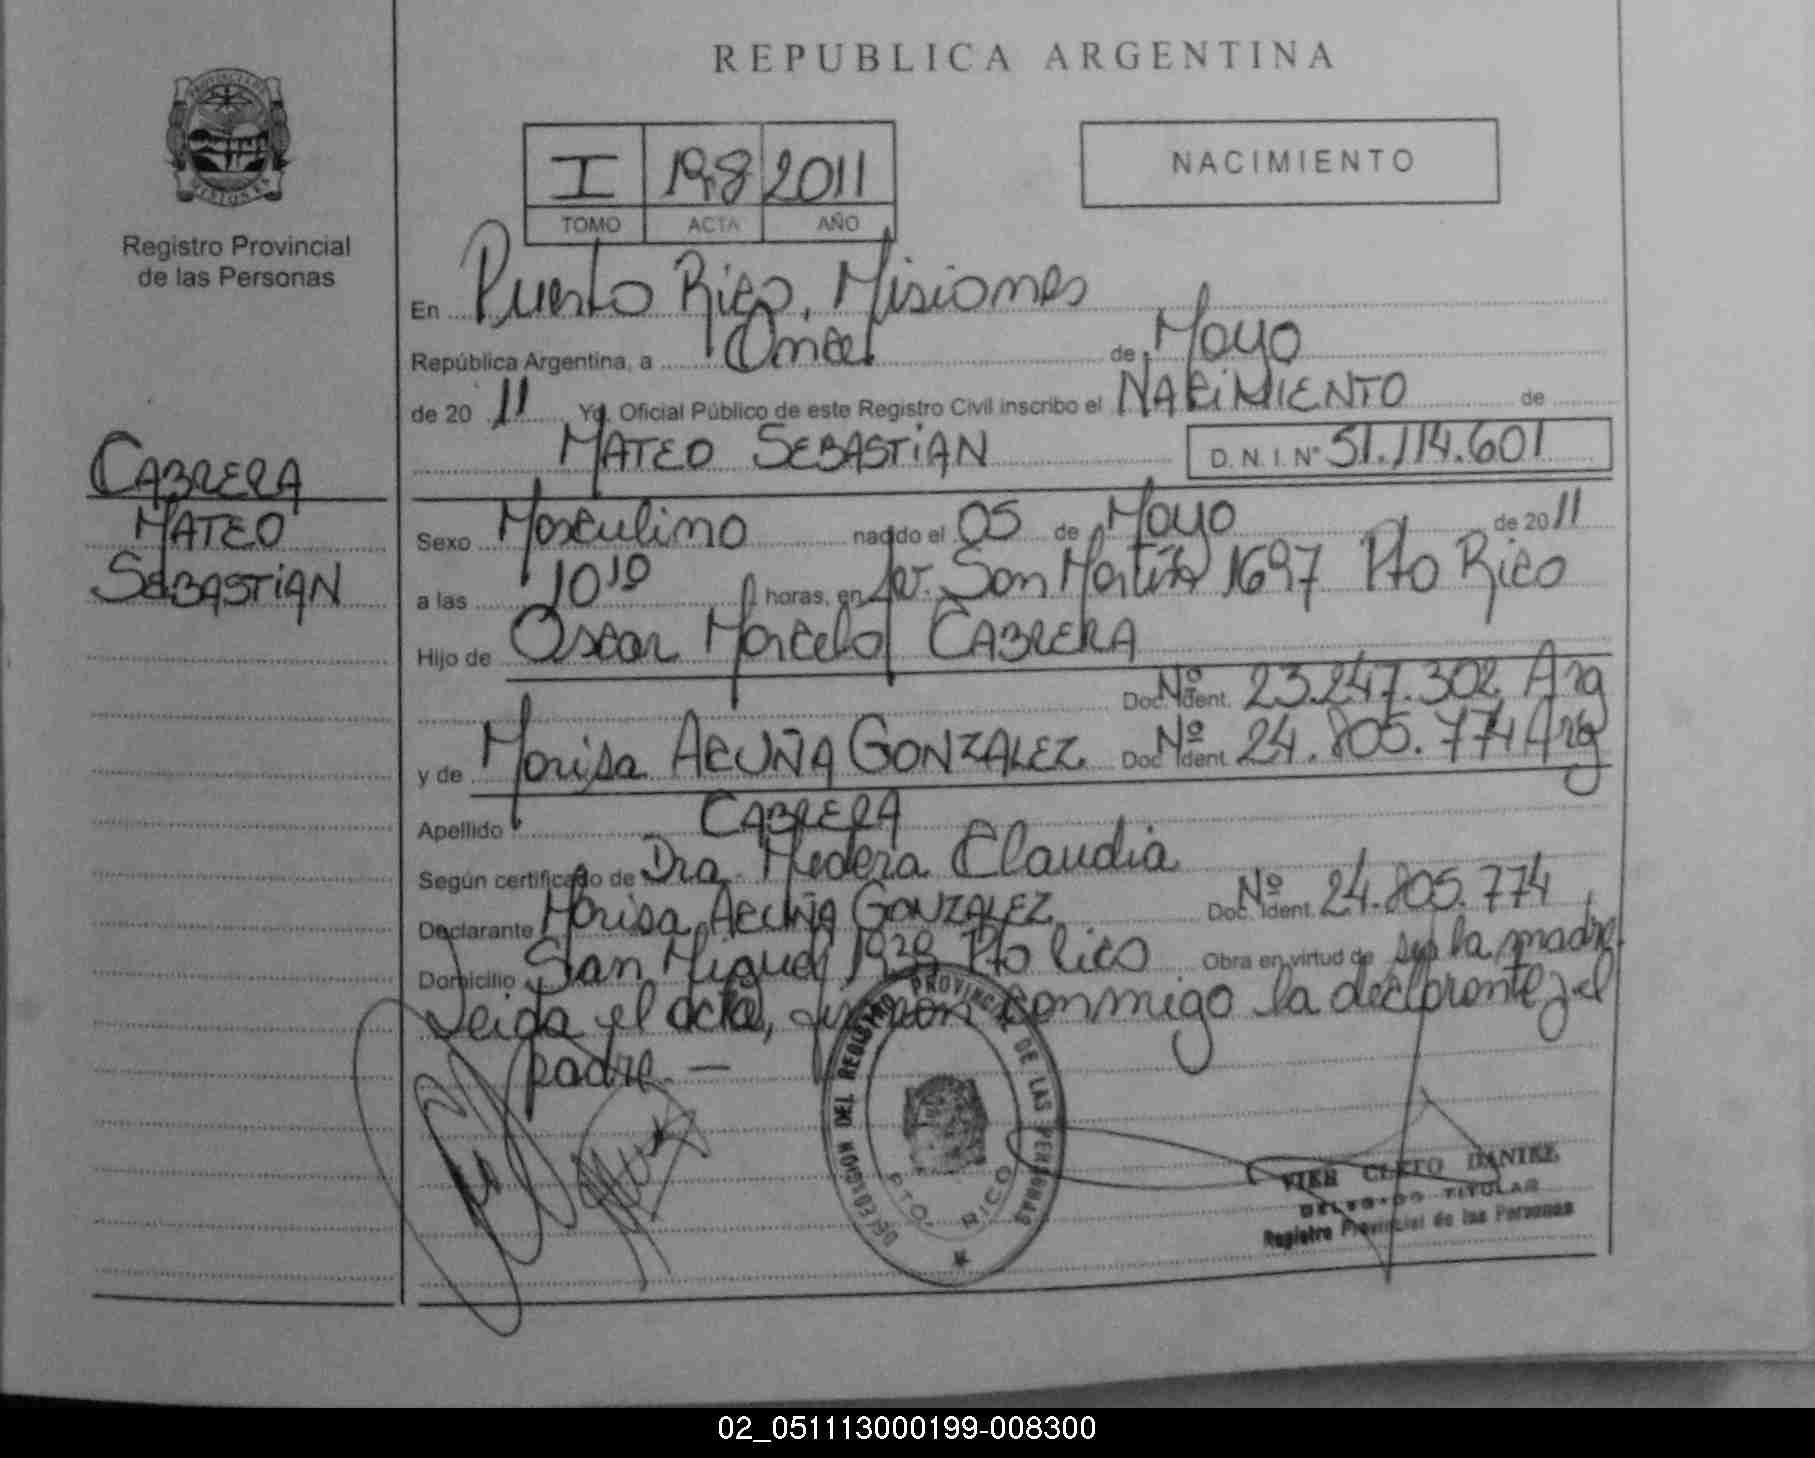 REPUBLICA ARGENTINA
PROVINCIA DE MISIONES
Registro Provincial
de las Personas
I 198 2011
TOMO ACTA AÑO
NACIMIENTO
En Puerto Rico, Misiones
República Argentina, a Once de Mayo
de 20 11 Yo, Oficial Público de este Registro Civil inscribo el NACIMIENTO de
MATEO SEBASTIAN D.N.I. Nº 51.114.601
CABRERA
MATEO
SEBASTIAN
Sexo Masculino nacido el 05 de Mayo de 20 11
a las 10 10 horas, en Av. San Martín 1697 Pto Rico
Hijo de Oscar Marcelo CABRERA
Doc. Ident. Nº 23.247.302 Arg
y de Marisa ACUÑA GONZALEZ Doc. Ident. Nº 24.805.774 Arg
Apellido CABRERA
Según certificado de Dra. Medera Claudia
Declarante Marisa ACUÑA GONZALEZ Doc. Ident. Nº 24.805.774
Domicilio San Miguel 1939 Pto Rico Obra en virtud de ser la madre
Leida el acta, firman conmigo la declarante y el
padre.—
DELEGACION DEL REGISTRO PROVINCIAL DE LAS PERSONAS
PTO. RICO
VIER CLETO DANIEL
DELEGADO TITULAR
Registro Provincial de las Personas
02_051113000199-008300